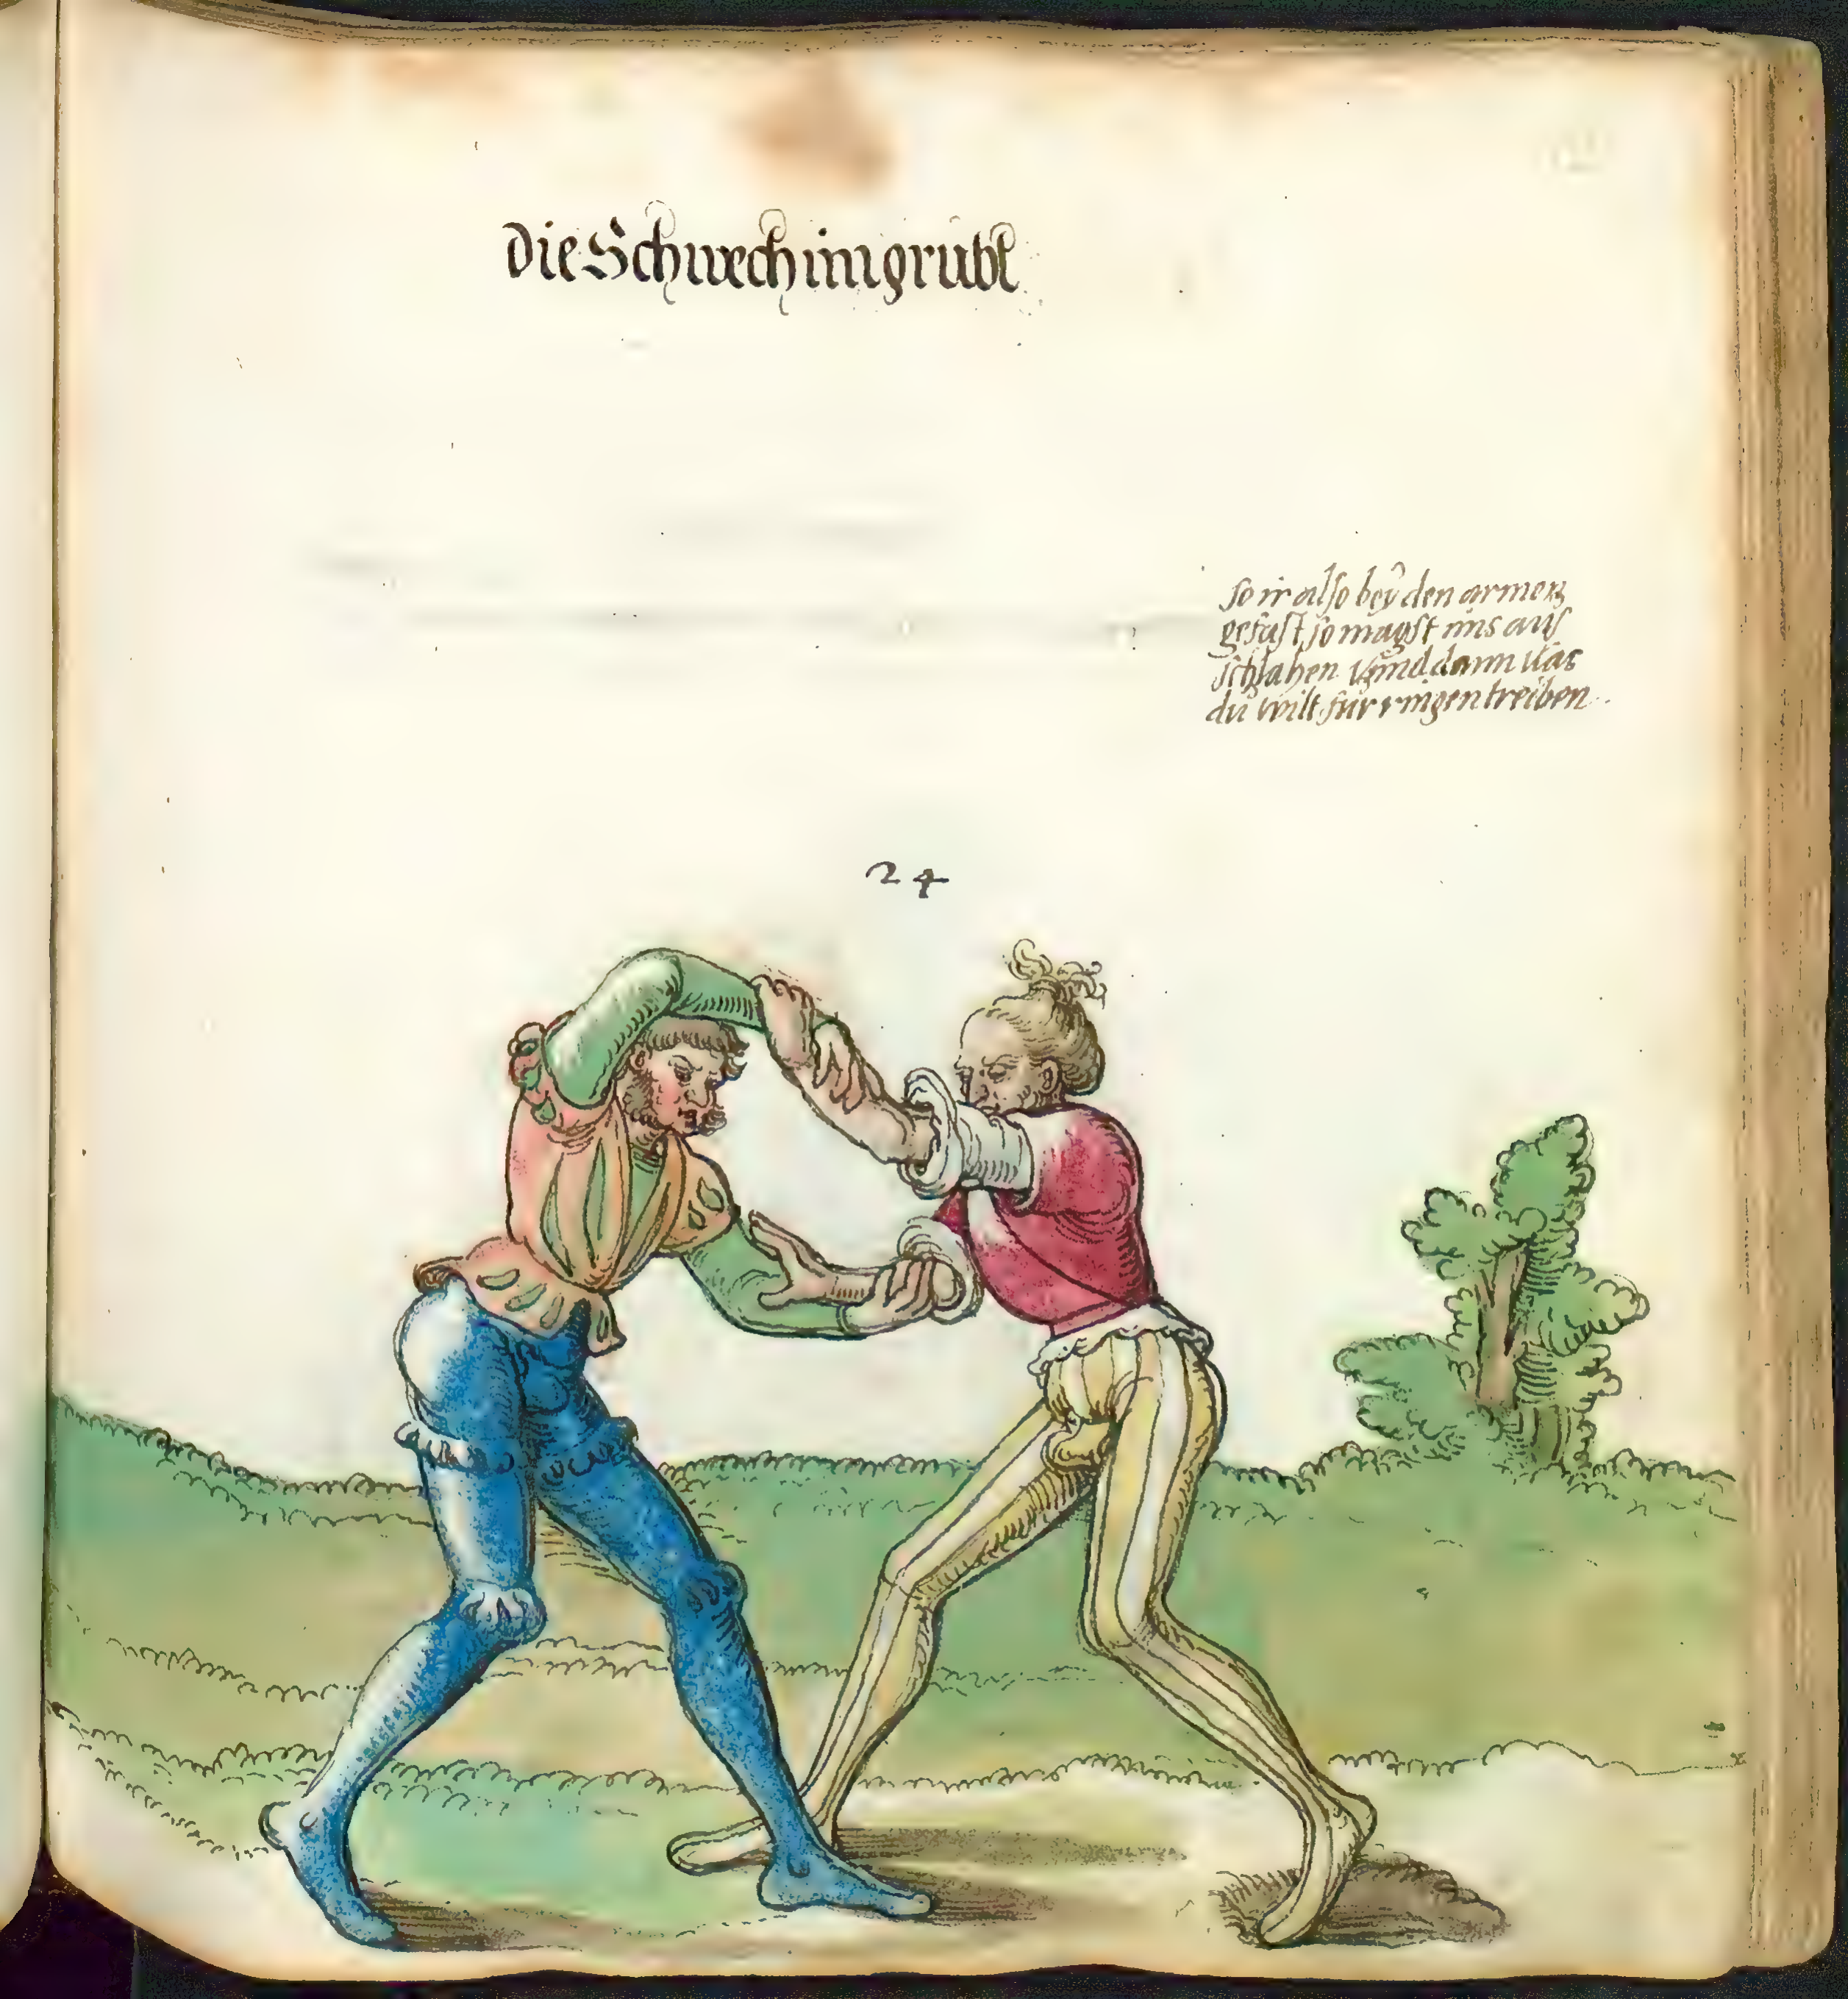 Die Schwech im grubl
so ir also beÿ den armen
gefast so magst ims aus
schlahen vnnd dann was
du wilt fur ringen treiben.
24